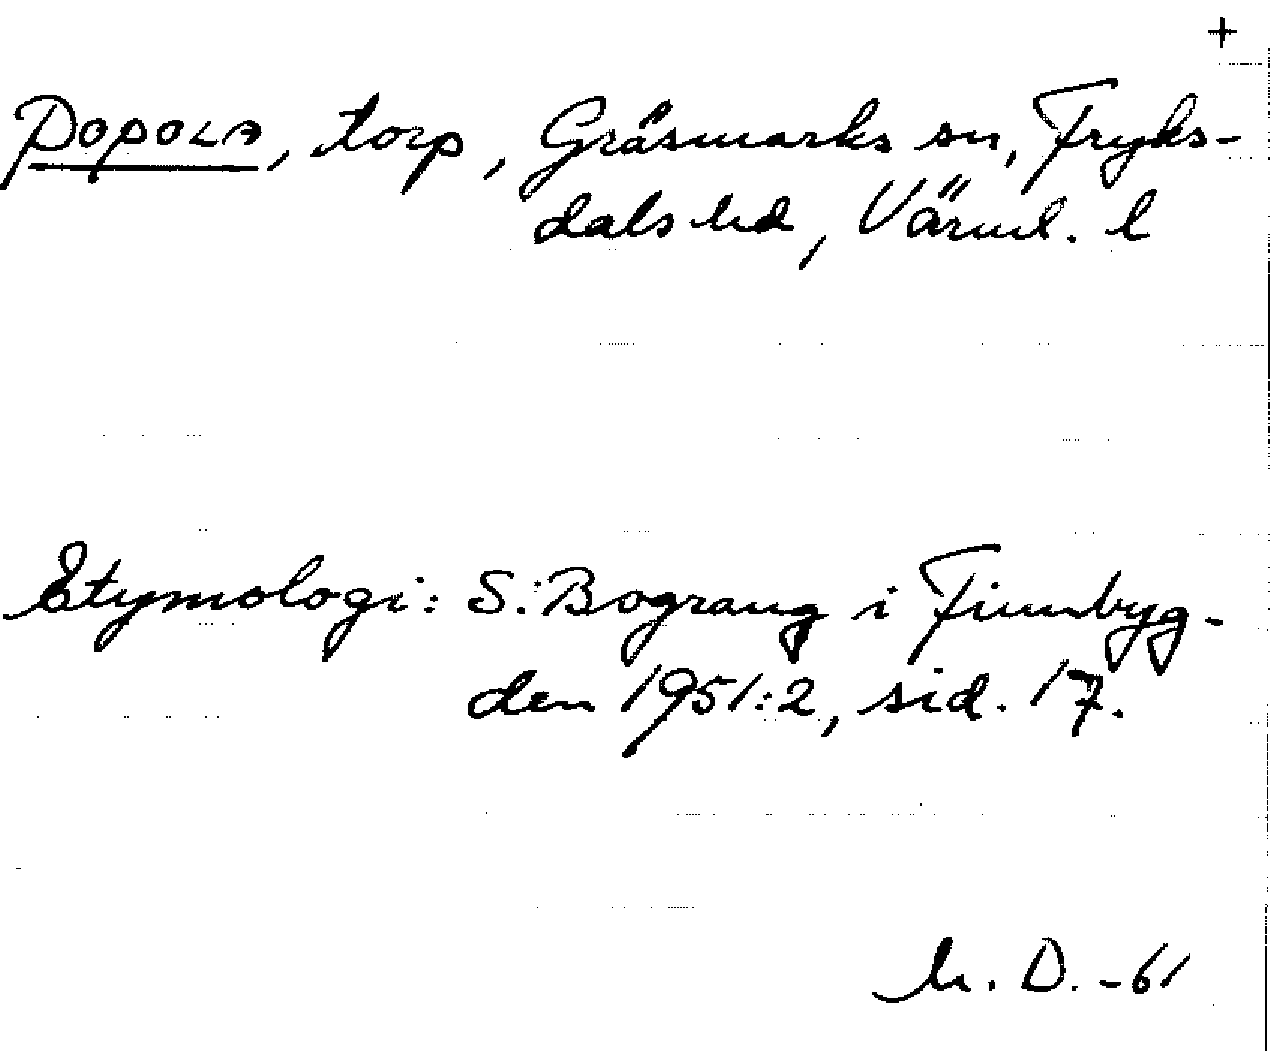 +
Popola, torp, Gräsmarks sn, Fryks-
dals hd, Värml. l
Etymologi: S. Bograng i Finnbyg-
den 1951:2, sid. 17.
D. -61